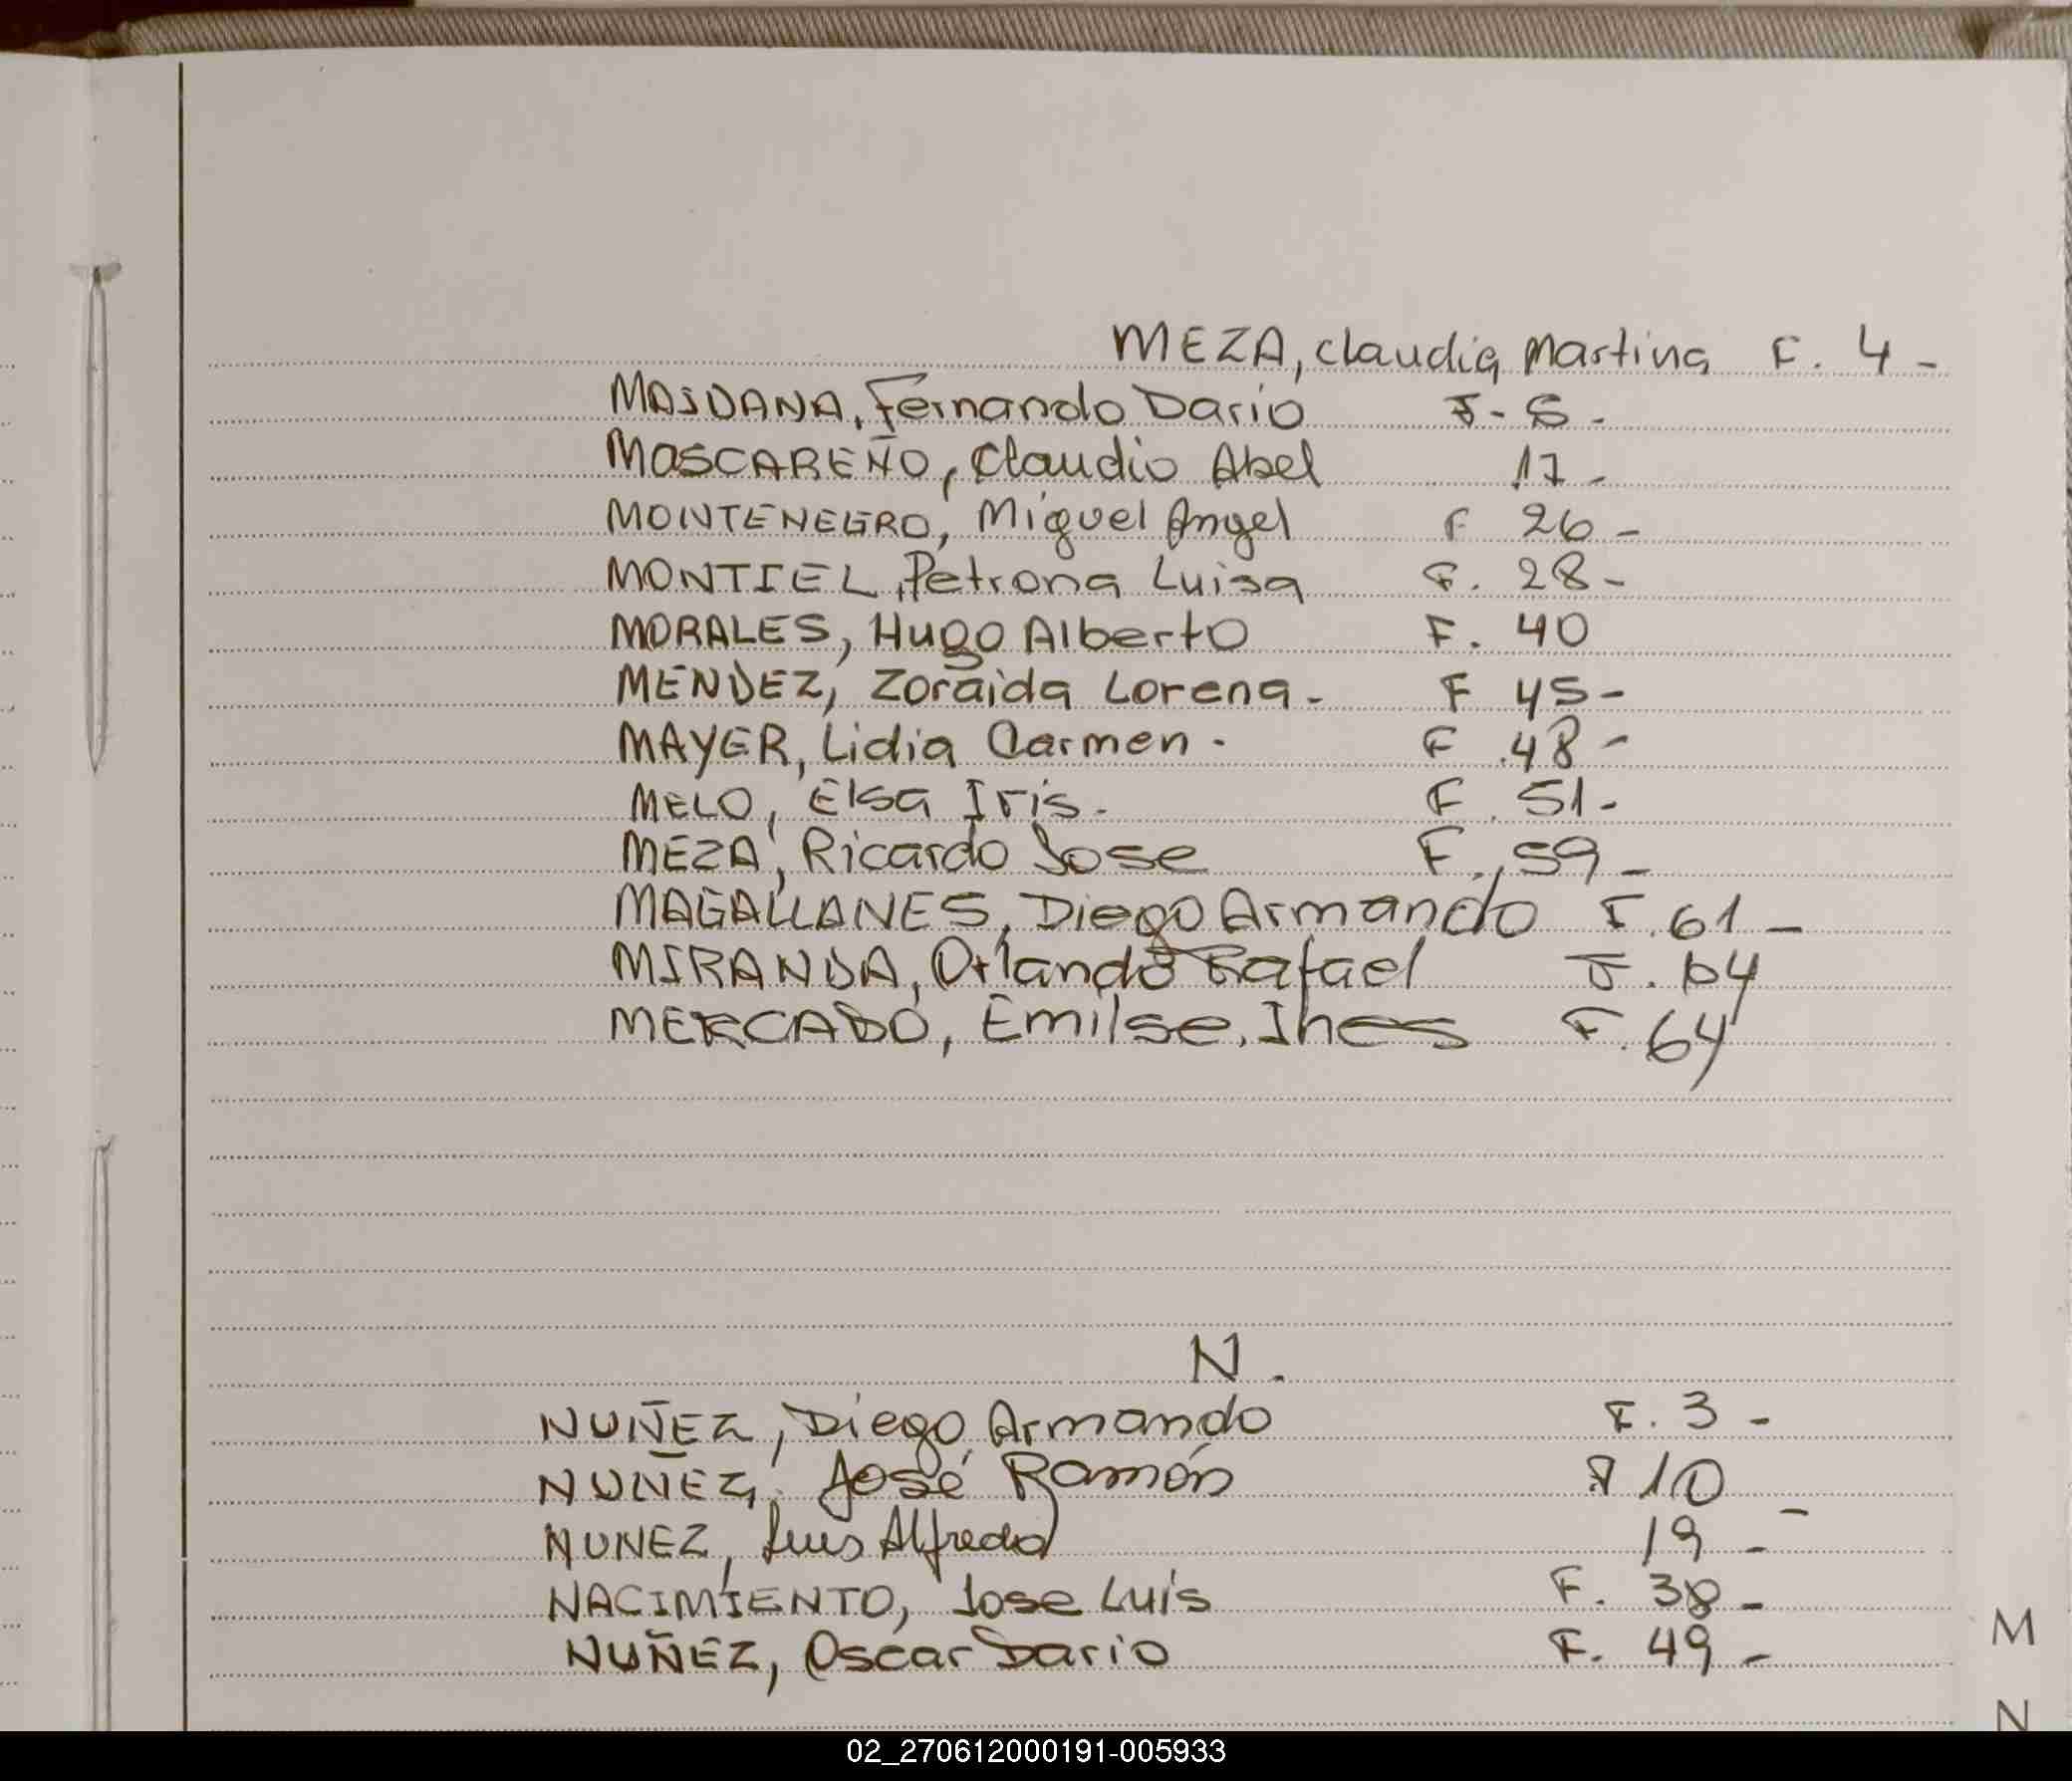 MEZA, Claudia Martina F. 4 -
MAIDANA, Fernando Dario F - 5 -
MOSCAREÑO, Claudio Abel 17 -
MONTENEGRO, Miguel Angel F 26 -
MONTIEL, Petrona Luisa F. 28 -
MORALES, Hugo Alberto F. 40
MENDEZ, Zoraida Lorena - F 45 -
MAYER, Lidia Carmen - F. 48 -
MELO, Elsa Iris - F. 51 -
MEZA, Ricardo Jose F. 59 -
MAGALLANES, Diego Armando F. 61 -
MIRANDA, Orlando Rafael F. 64
MERCADO, Emilse, Ines F. 64
N.
NUÑEZ, Diego Armando F. 3 -
NUÑEZ, José Ramón F 10 -
NUNEZ, Luis Alfredo 19 -
NACIMIENTO, Jose Luis F. 38 -
NUÑEZ, Oscar Dario F. 49 -
M
N
02_270612000191-005933